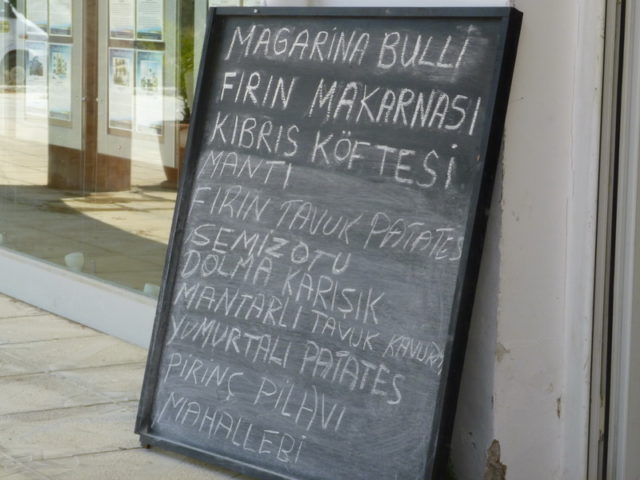 MAGARİNA BULLİ
FIRIN MAKARNASI
KIBRIS KÖFTESİ
MANTI
FIRIN TAVUK PATATES
SEMİZOTU
DOLMA KARIŞIK
MANTARLI TAVUK KAVURMA
YUMURTALI PATATES
PİRİNÇ PİLAVI
MAHALLEBİ